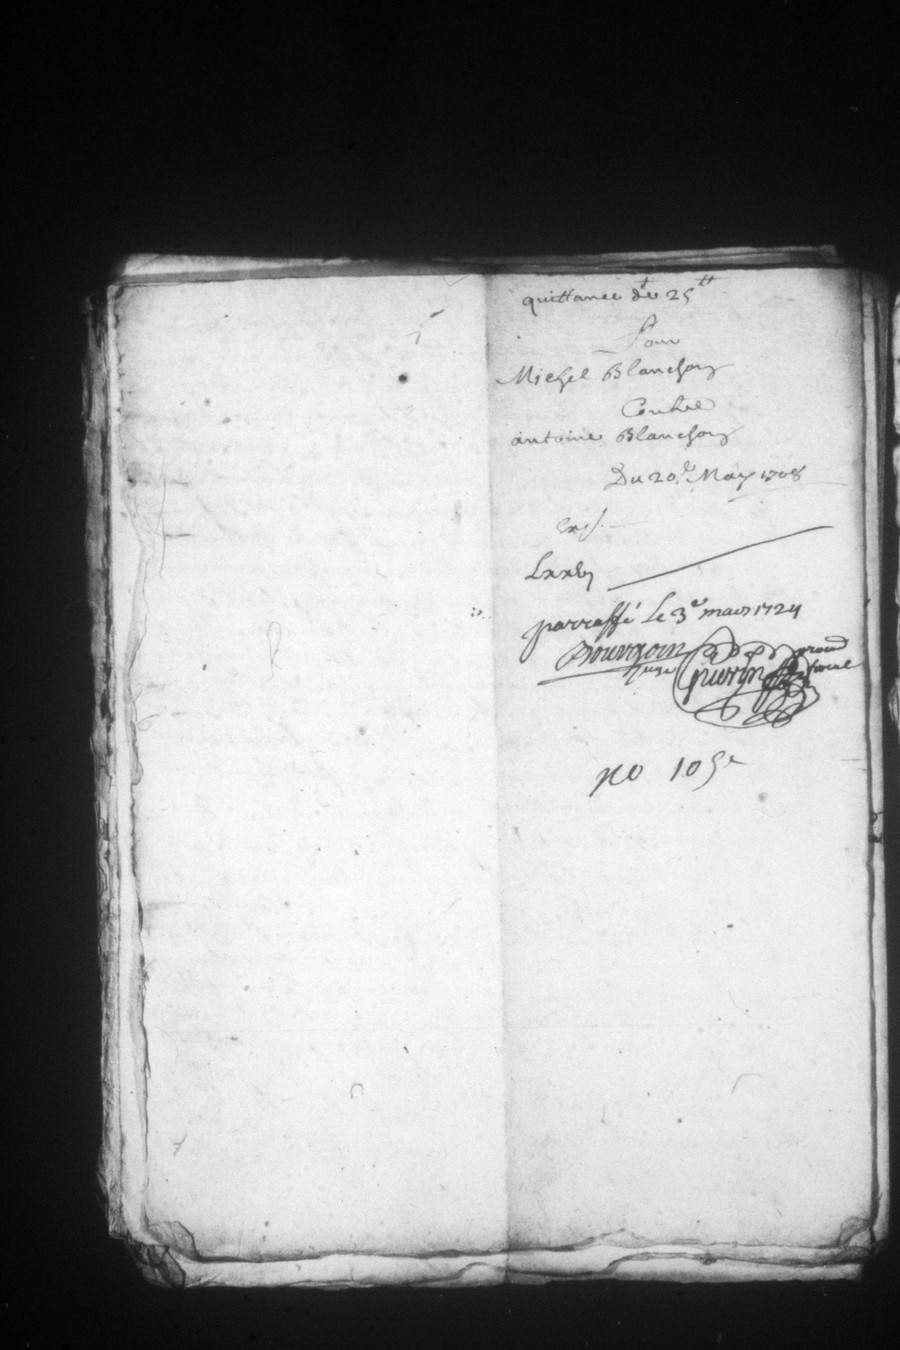 quittance de 25tt
Pour
Michel Blanchon
Contre
antoine Blanchon
Du 20e May 1708
parraffé Le 3e mars 1724
Bourgoin guerin
juge
no 105e